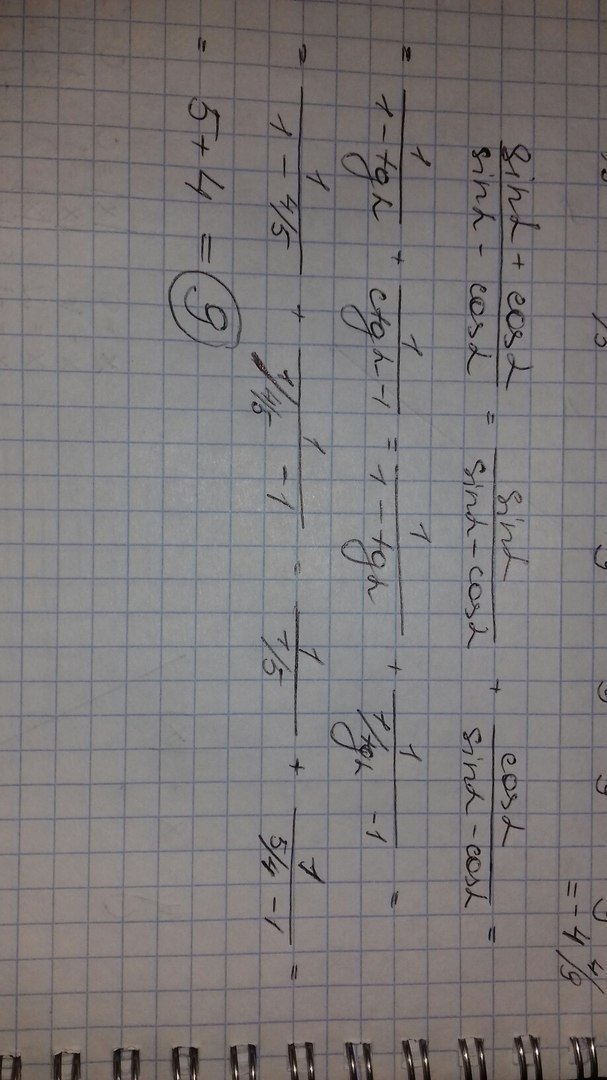 = -4/9
(sinα + cosα)/(sinα - cosα) = sinα/(sinα - cosα) + cosα/(sinα - cosα) =
= 1/(1 - tgα) + 1/(ctgα - 1) = 1/(1 - tgα) + 1/(1/tgα - 1) =
= 1/(1 - 4/5) + 1/(1/4/5 - 1) = 1/(1/5) + 1/(5/4 - 1) =
= 5 + 4 = 9